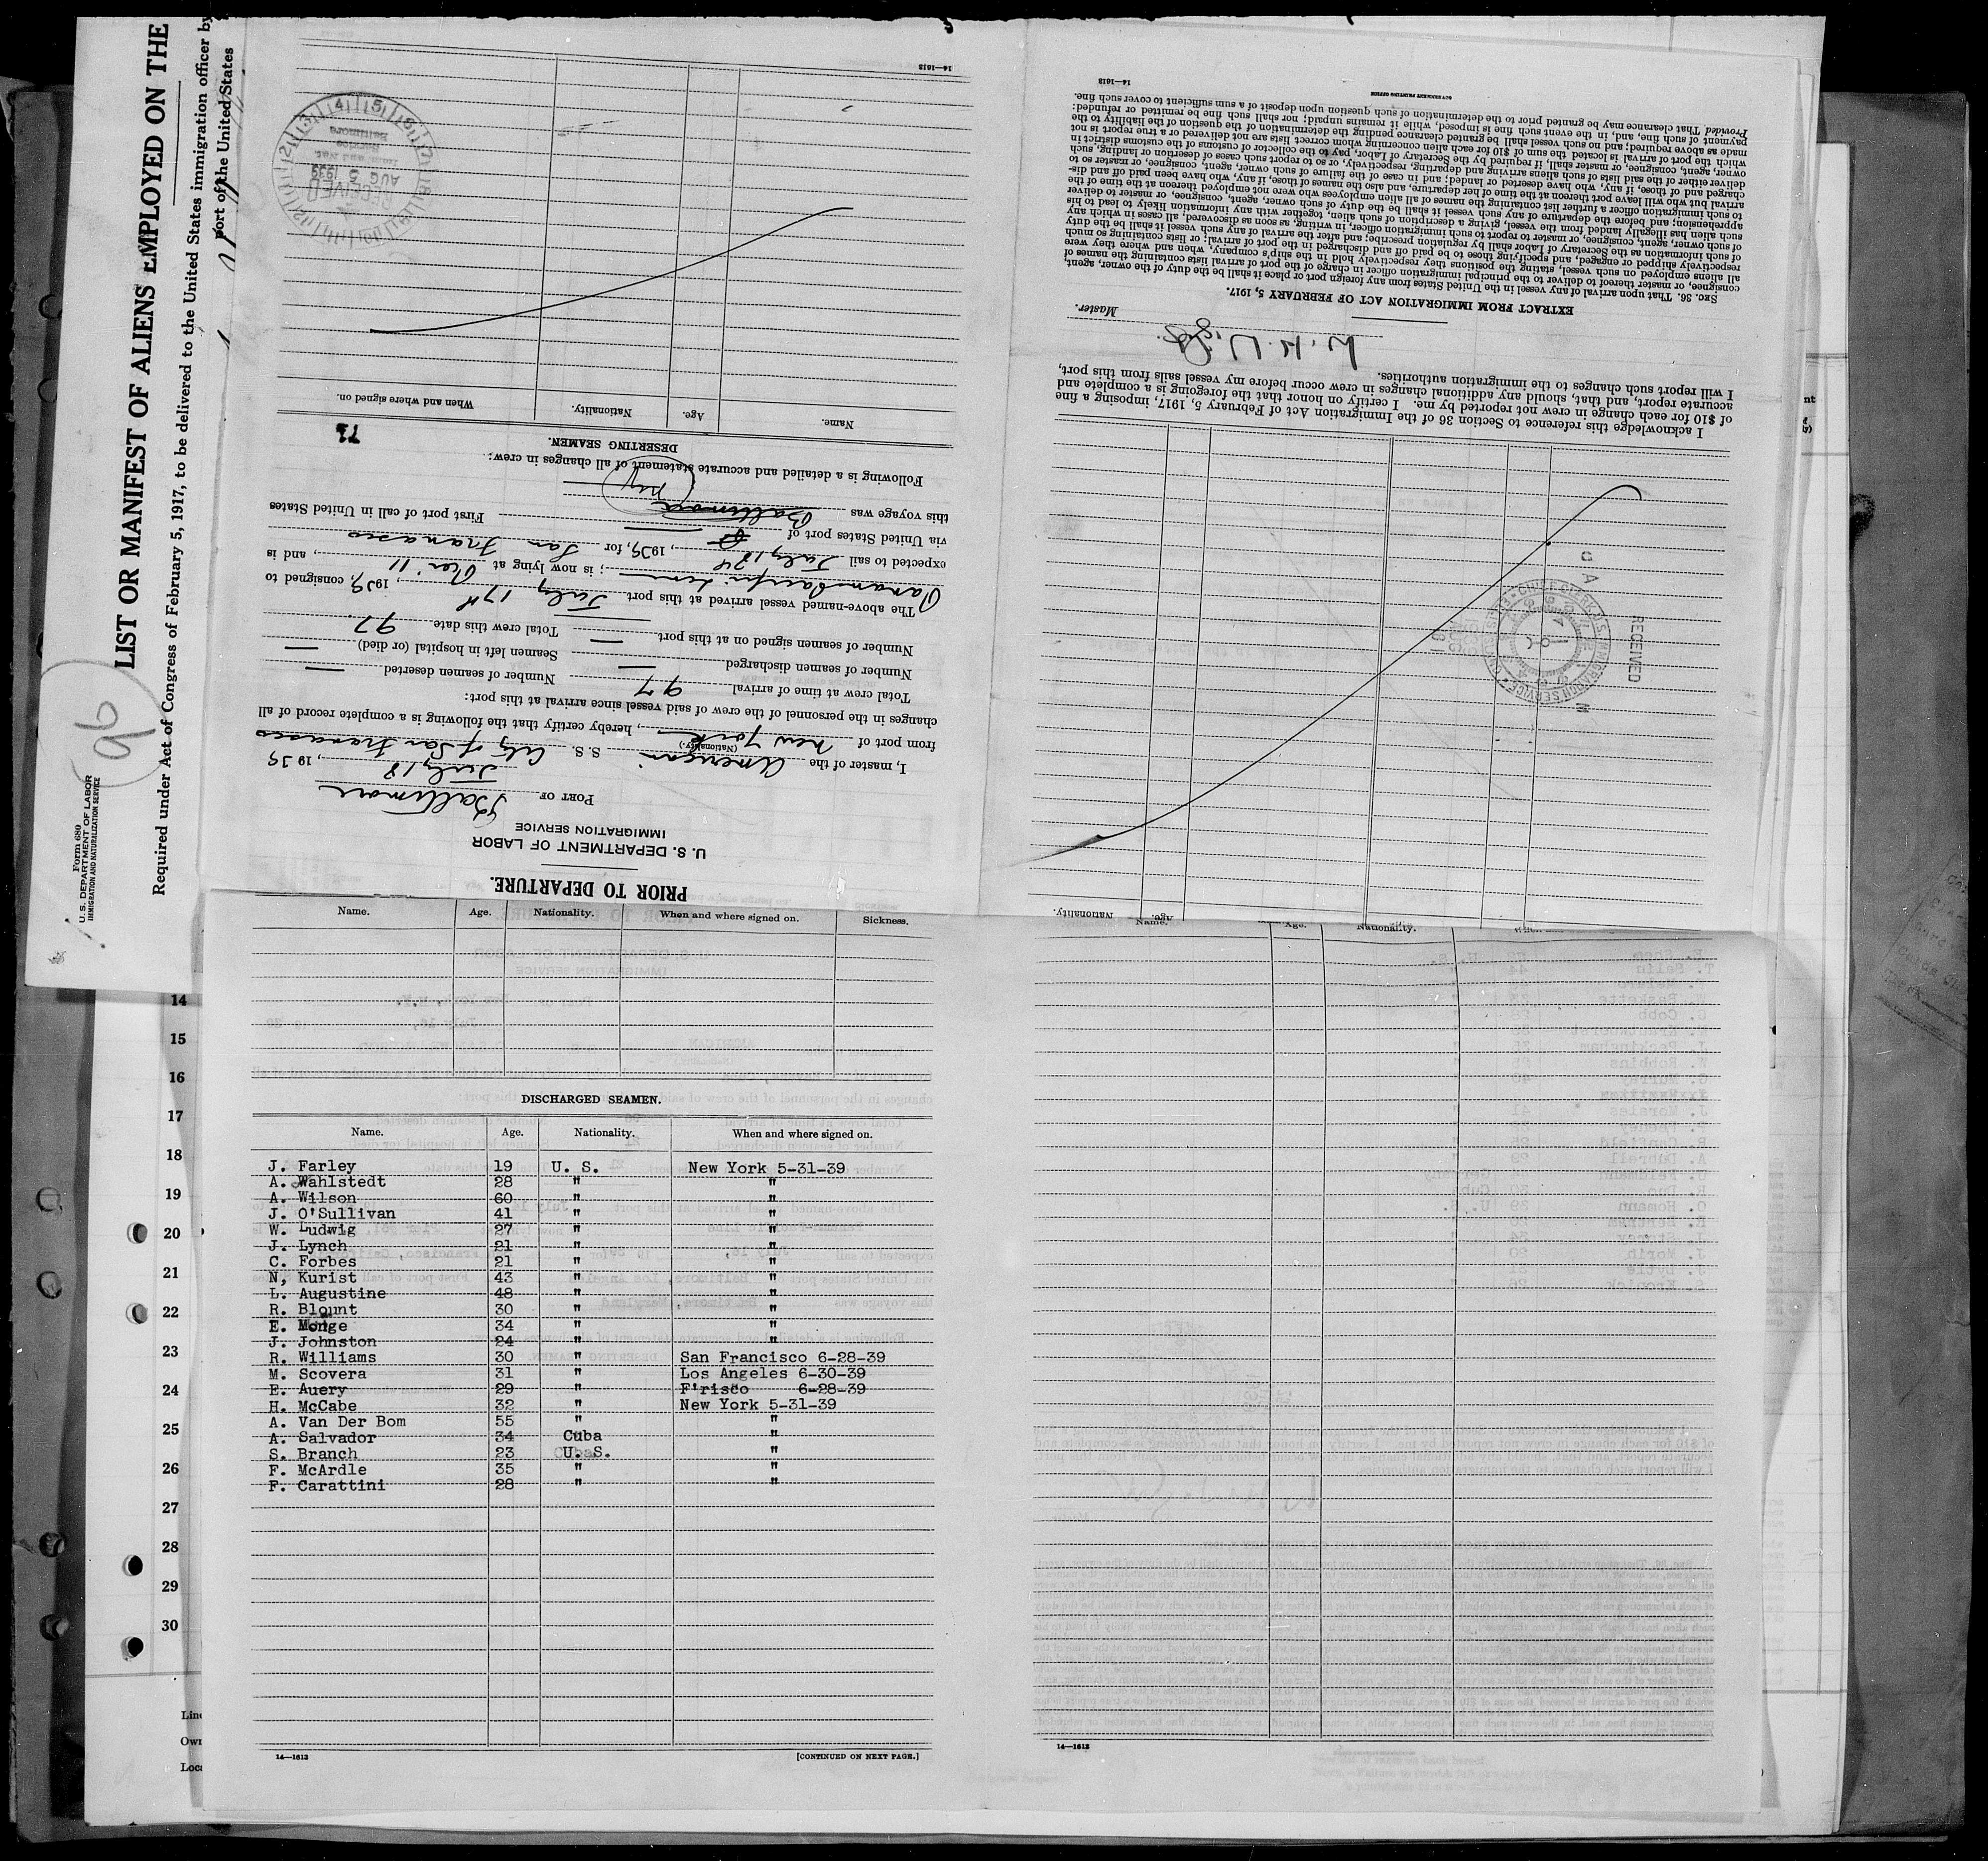 Form 680
U. S. DEPARTMENT OF LABOR
IMMIGRATION AND NATURALIZATION SERVICE
96
LIST OR MANIFEST OF ALIENS EMPLOYED ON THE
Required under Act of Congress of February 5, 1917, to be delivered to the United States immigration officer by
port of the United States
PRIOR TO DEPARTURE.
U. S. DEPARTMENT OF LABOR
IMMIGRATION SERVICE
PORT OF Baltimore
July 18, 1939
I, master of the American S. S. City of San Francisco
(Nationality.)
from port of New York, hereby certify that the following is a complete record of all
changes in the personnel of the crew of said vessel since arrival at this port:
Total crew at time of arrival 97 Number of seamen deserted —
Number of seamen discharged — Seamen left in hospital (or died) —
Number of seamen signed on at this port — Total crew this date 97.
The above-named vessel arrived at this port July 17th, 1939, consigned to
Panama Pacific Line; is now lying at Pier 11, and is
expected to sail July 18, 1939, for San Francisco
via United States port of
this voyage was Baltimore First port of call in United States
Following is a detailed and accurate statement of all changes in crew:
DESERTING SEAMEN.
Name. Age. Nationality. When and where signed on.
RECEIVED
AUG 5 1939
Baltimore
14—1613
Nationality. Age.
RECEIVED
CHIEF CLERK U. S. IMMIGRATION SERVICE
I acknowledge this reference to Section 36 of the Immigration Act of February 5, 1917, imposing a fine
of $10 for each change in crew not reported by me. I certify on honor that the foregoing is a complete and
accurate report, and that, should any additional changes in crew occur before my vessel sails from this port,
I will report such changes to the immigration authorities.
Master.
EXTRACT FROM IMMIGRATION ACT OF FEBRUARY 5, 1917.
SEC. 36. That upon arrival of any vessel in the United States from any foreign port or place it shall be the duty of the owner, agent,
consignee, or master thereof to deliver to the principal immigration officer in charge of the port of arrival lists containing the names of
all aliens employed on such vessel, stating the positions they respectively hold in the ship's company, when and where they were
respectively shipped or engaged, and specifying those to be paid off and discharged in the port of arrival; or lists containing so much
of such information as the Secretary of Labor shall by regulation prescribe; and after the arrival of any such vessel it shall be the duty
of such owner, agent, consignee, or master to report to such immigration officer, in writing, as soon as discovered, all cases in which any
such alien has illegally landed from the vessel, giving a description of such alien, together with any information likely to lead to his
apprehension; and before the departure of any such vessel it shall be the duty of such owner, agent, consignee, or master to deliver
to such immigration officer a further list containing the names of all alien employees who were not employed thereon at the time of the
arrival but who will leave port thereon at the time of her departure, and also the names of those, if any, who have been paid off and dis-
charged and of those, if any, who have deserted or landed; and in case of the failure of such owner, agent, consignee, or master so to
deliver either of the said lists of such aliens arriving and departing, respectively, or so to report such cases of desertion or landing, such
owner, agent, consignee, or master shall, if required by the Secretary of Labor, pay to the collector of customs of the customs district in
which the port of arrival is located the sum of $10 for each alien concerning whom correct lists are not delivered or a true report is not
made as above required; and no such vessel shall be granted clearance pending the determination of the question of the liability to the
payment of such fine, and, in the event such fine is imposed, while it remains unpaid; nor shall such fine be remitted or refunded:
Provided That clearance may be granted prior to the determination of such question upon deposit of a sum sufficient to cover such fine.
14—1613
Name. Age. Nationality. When and where signed on. Sickness.
DISCHARGED SEAMEN.
Name. Age. Nationality. When and where signed on.
J. Farley 19 U. S. New York 5-31-39
A. Wahlstedt 28 " "
A. Wilson 60 " "
J. O'Sullivan 41 " "
W. Ludwig 27 " "
J. Lynch 21 " "
C. Forbes 21 " "
N, Kurist 43 " "
L. Augustine 48 " "
R. Blount 30 " "
E. Monge 34 " "
J. Johnston 24 " "
R. Williams 30 " San Francisco 6-28-39
M. Scovera 31 " Los Angeles 6-30-39
E. Auery 29 " F'risco 6-28-39
H. McCabe 32 " New York 5-31-39
A. Van Der Bom 55 " "
A. Salvador 34 Cuba "
S. Branch 23 U. S. "
F. McArdle 35 " "
F. Carattini 28 " "
14—1613 [CONTINUED ON NEXT PAGE.]
Name. Age. Nationality.
14—1613
14
15
16
17
18
19
20
21
22
23
24
25
26
27
28
29
30